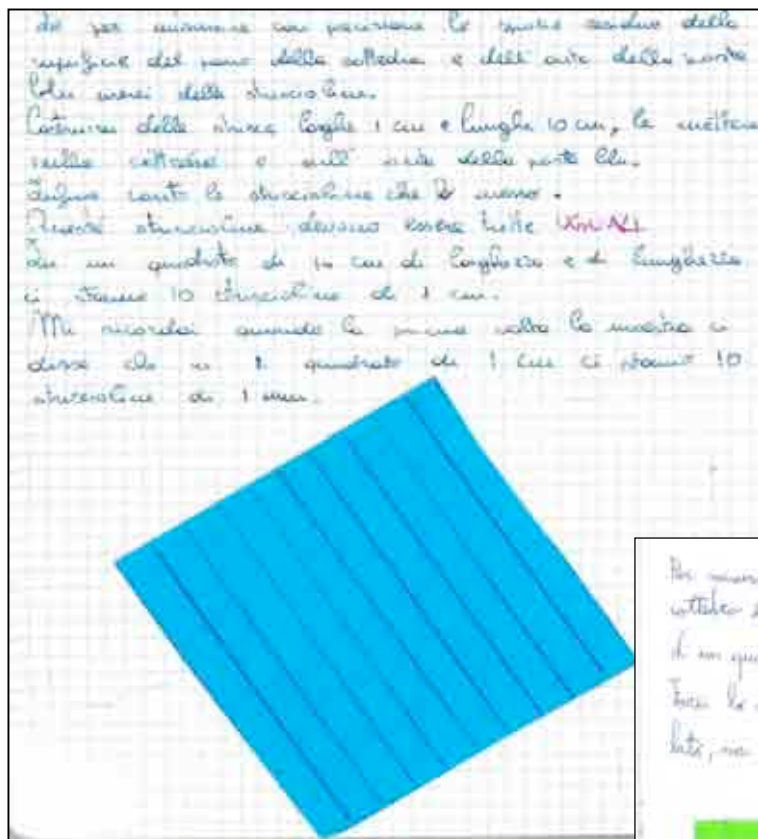 per misurare con precisione lo spazio residuo della
superficie del piano della cattedra e dell'anta della porta
blu userei delle striscioline.
Costruirei delle strisce larghe 1 cm e lunghe 10 cm, le metterei
sulla cattedra e sull'anta della porta blu.
Infine conto le striscioline che messo.
Queste striscioline devono essere tutte UGUALI
In un quadrato di 10 cm di larghezza e di lunghezza
ci stanno 10 striscioline di 1 cm.
Mi ricordai quando la prima volta la maestra ci
disse che in 1 quadrato di 1 cm ci stanno 10
striscioline di 1 mm.
Per
di un